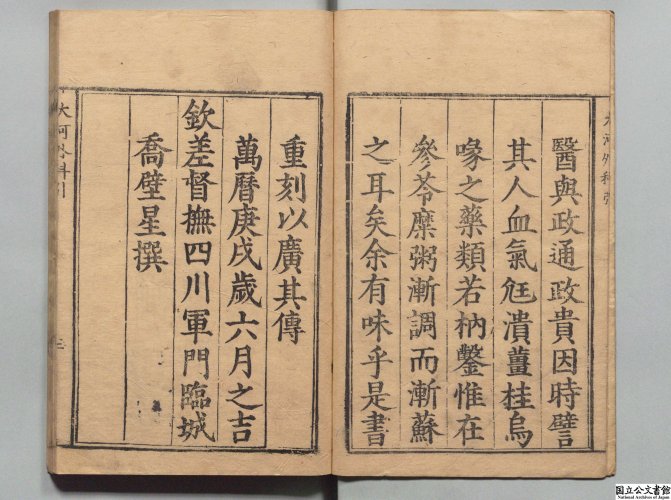 醫與政通政貴因時譬
其人血氣尫潰薑桂烏
喙之藥類若枘鑿惟在
參苓糜粥漸調而漸蘇
之耳矣余有味乎是書
重刻以廣其傳
萬曆庚戌歲六月之吉
欽差督撫四川軍門臨城
喬璧星撰
大河外科引
三
国立公文書館
National Archives of Japan